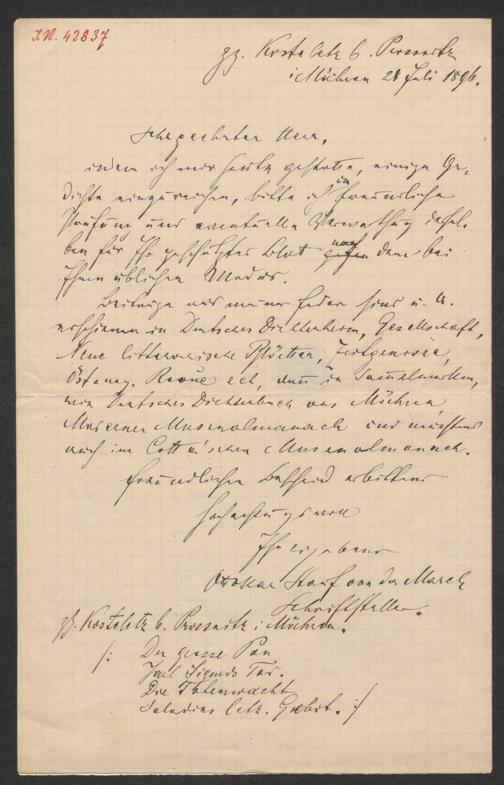 I.N. 42837
zz. Kosteletz b. Prossnitz
i. Mähren 28 Juli 1896.
Sehr geehrter Herr,
indem ich mir heute gestatte, einige Ge-
dichte einzureichen, bitte ich um freundliche
Prüfung und eventuelle Verwerthung dersel-
ben für Ihr geschätztes Blatt nach dem bei
Ihnen üblichen Modus.
Beiträge aus meiner Feder sind u. A.
erschienen in Deutsches Dichterheim, Gesellschaft,
Neue litterarische Blätter, Zeitgenosse,
Österung. Revue ect, dann in Sammelwerken,
wie Deutsches Dichterbuch aus Mähren,
Moderner Musenalmanach und nächstens
auch im Cotta'schen Musenalmanach.
Freundlichen Bescheid erbittend
hochachtungsvoll
Ihr ergebener
Ottokar Stauf von der March
Schriftsteller.
zz. Kosteletz b. Prossnitz i. Mähren.
/: Der grosse Pan
Jarl Sigurds Tod.
Die Totenwacht
Saladins letz. Gebot. :/